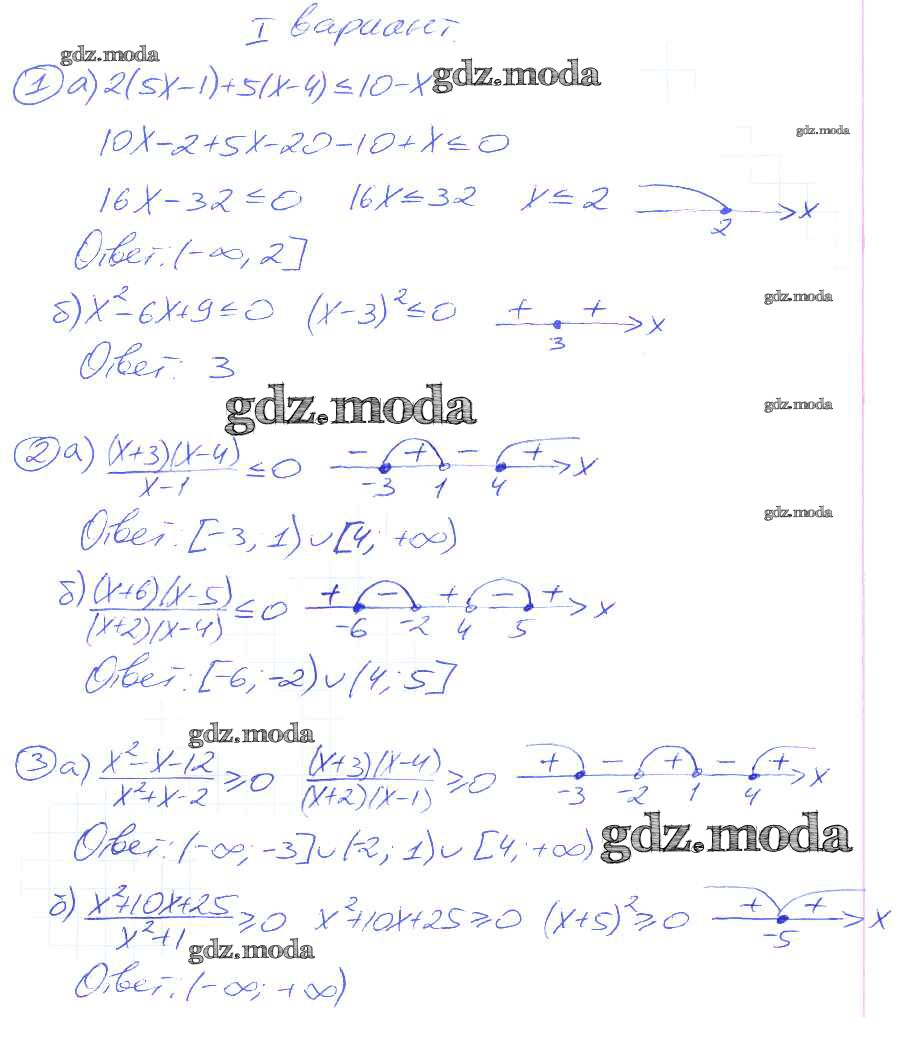 I вариант.
gdz.moda
① а) 2(5x-1)+5(x-4)≤10-x gdz.moda
gdz.moda
10x-2+5x-20-10+x≤0
16x-32≤0 16x≤32 x≤2 2 x
Ответ: (-∞, 2]
gdz.moda
б) x²-6x+9≤0 (x-3)²≤0 + + 3 x
Ответ: 3
gdz.moda
gdz.moda
② а) (x+3)(x-4)/(x-1) ≤0 - + - + -3 1 4 x
gdz.moda
Ответ: [-3; 1)∪[4; +∞)
б) (x+6)(x-5)/((x+2)(x-4)) ≤0 + - + - + -6 -2 4 5 x
Ответ: [-6; -2)∪(4; 5]
gdz.moda
③ а) (x²-x-12)/(x²+x-2) ≥0 (x+3)(x-4)/((x+2)(x-1)) ≥0 + - + - + -3 -2 1 4 x
Ответ: (-∞; -3]∪(-2; 1)∪[4; +∞) gdz.moda
б) (x²+10x+25)/(x²+1) ≥0 x²+10x+25≥0 (x+5)²≥0 + + -5 x
gdz.moda
Ответ: (-∞; +∞)